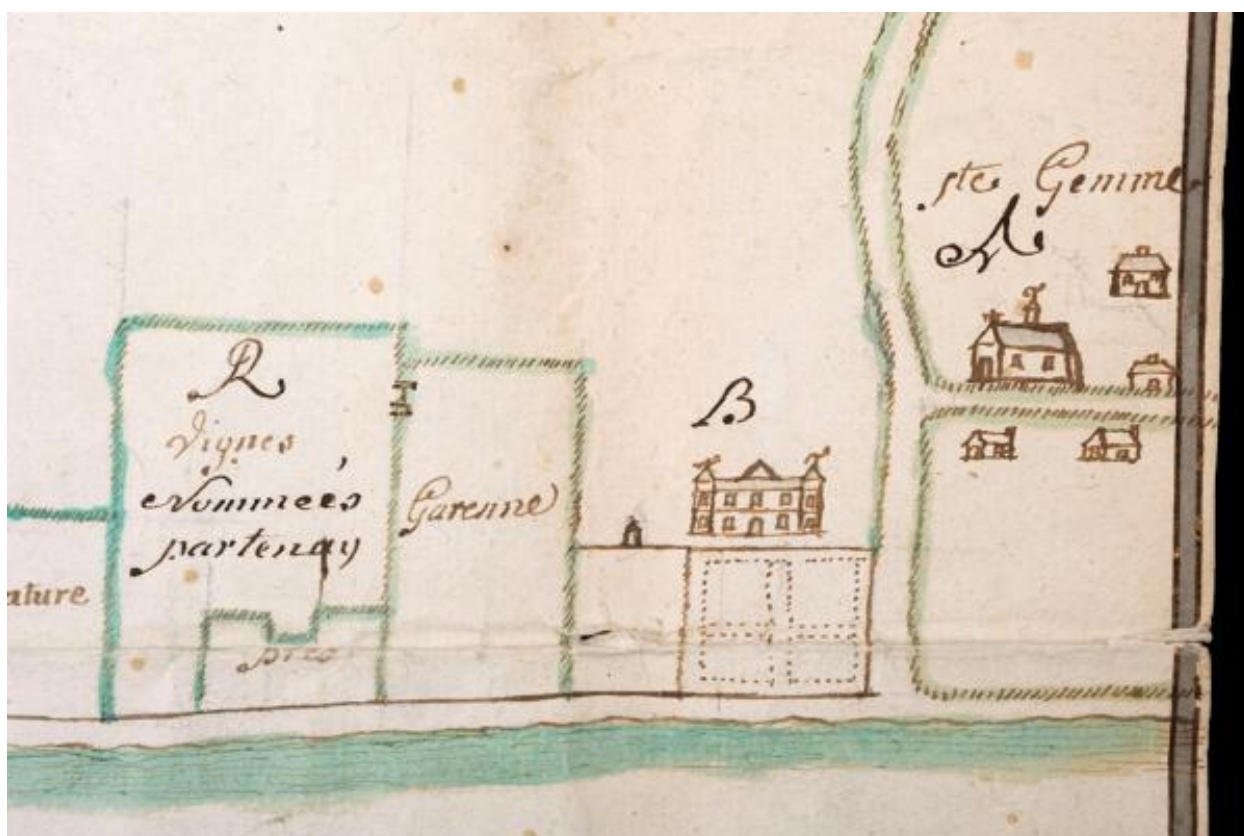 ste Gemme
A
R
vignes
Nommées
partenay
Garenne
B
ature
prés